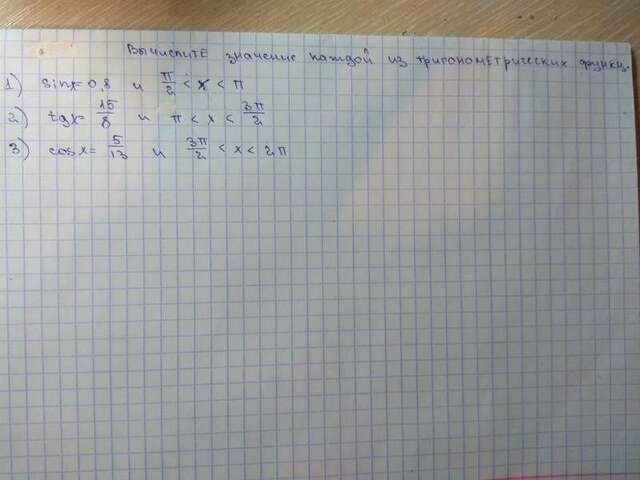 Вычислите значение каждой из тригонометрических функц.
1) sinx=0,8 и π/2 < x < π
2) tgx= 15/8 и π < x < 3π/2
3) cosx= 5/13 и 3π/2 < x < 2π